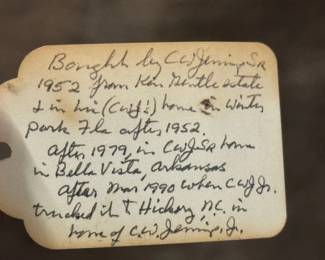 Bought by CWJennings SR
1952 from Ken Gentle estate
& in his (CWJ's) home in Winter
Park Fla after 1952.
After 1979, in CWJSR home
in Bella Vista, Arkansas
After Mar 1990 when CWJ Jr.
trucked it to Hickory, N.C. in
home of C.W. Jennings, Jr.